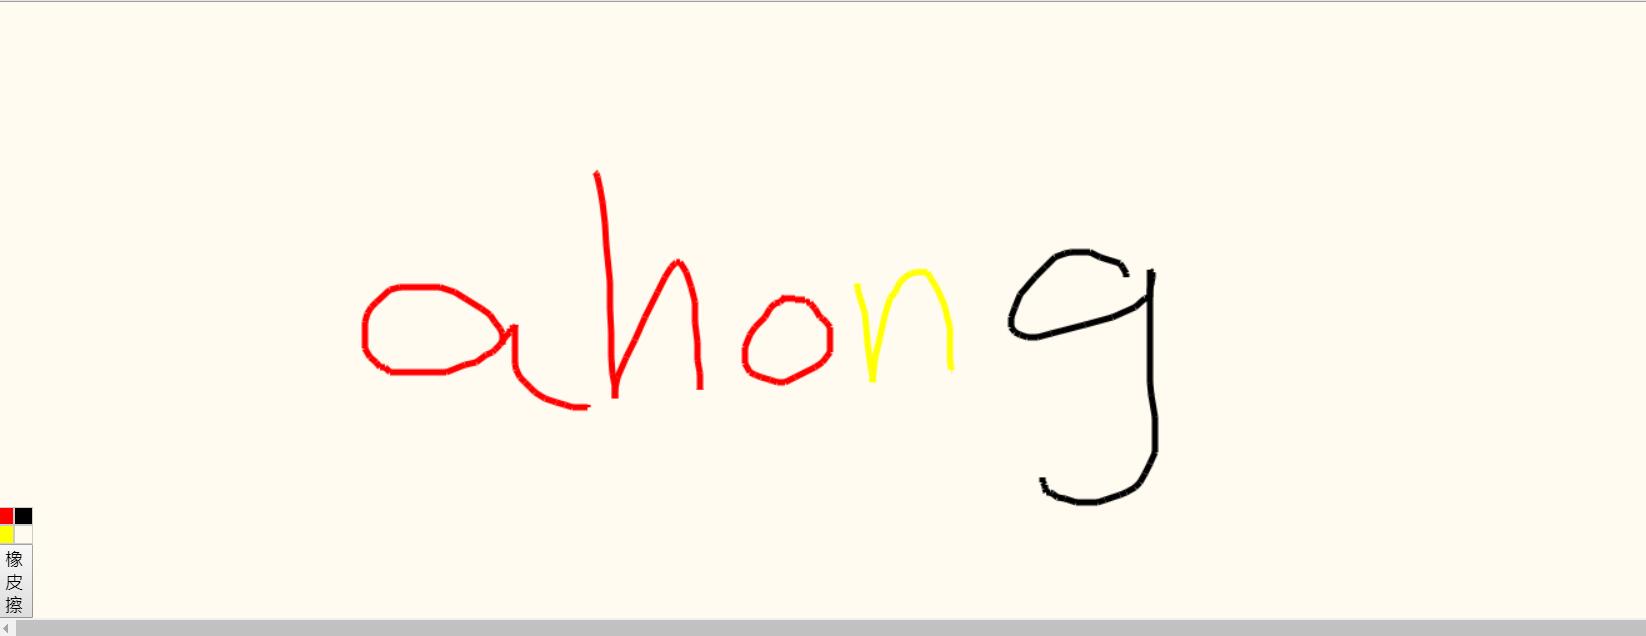 ahong
橡
皮
擦